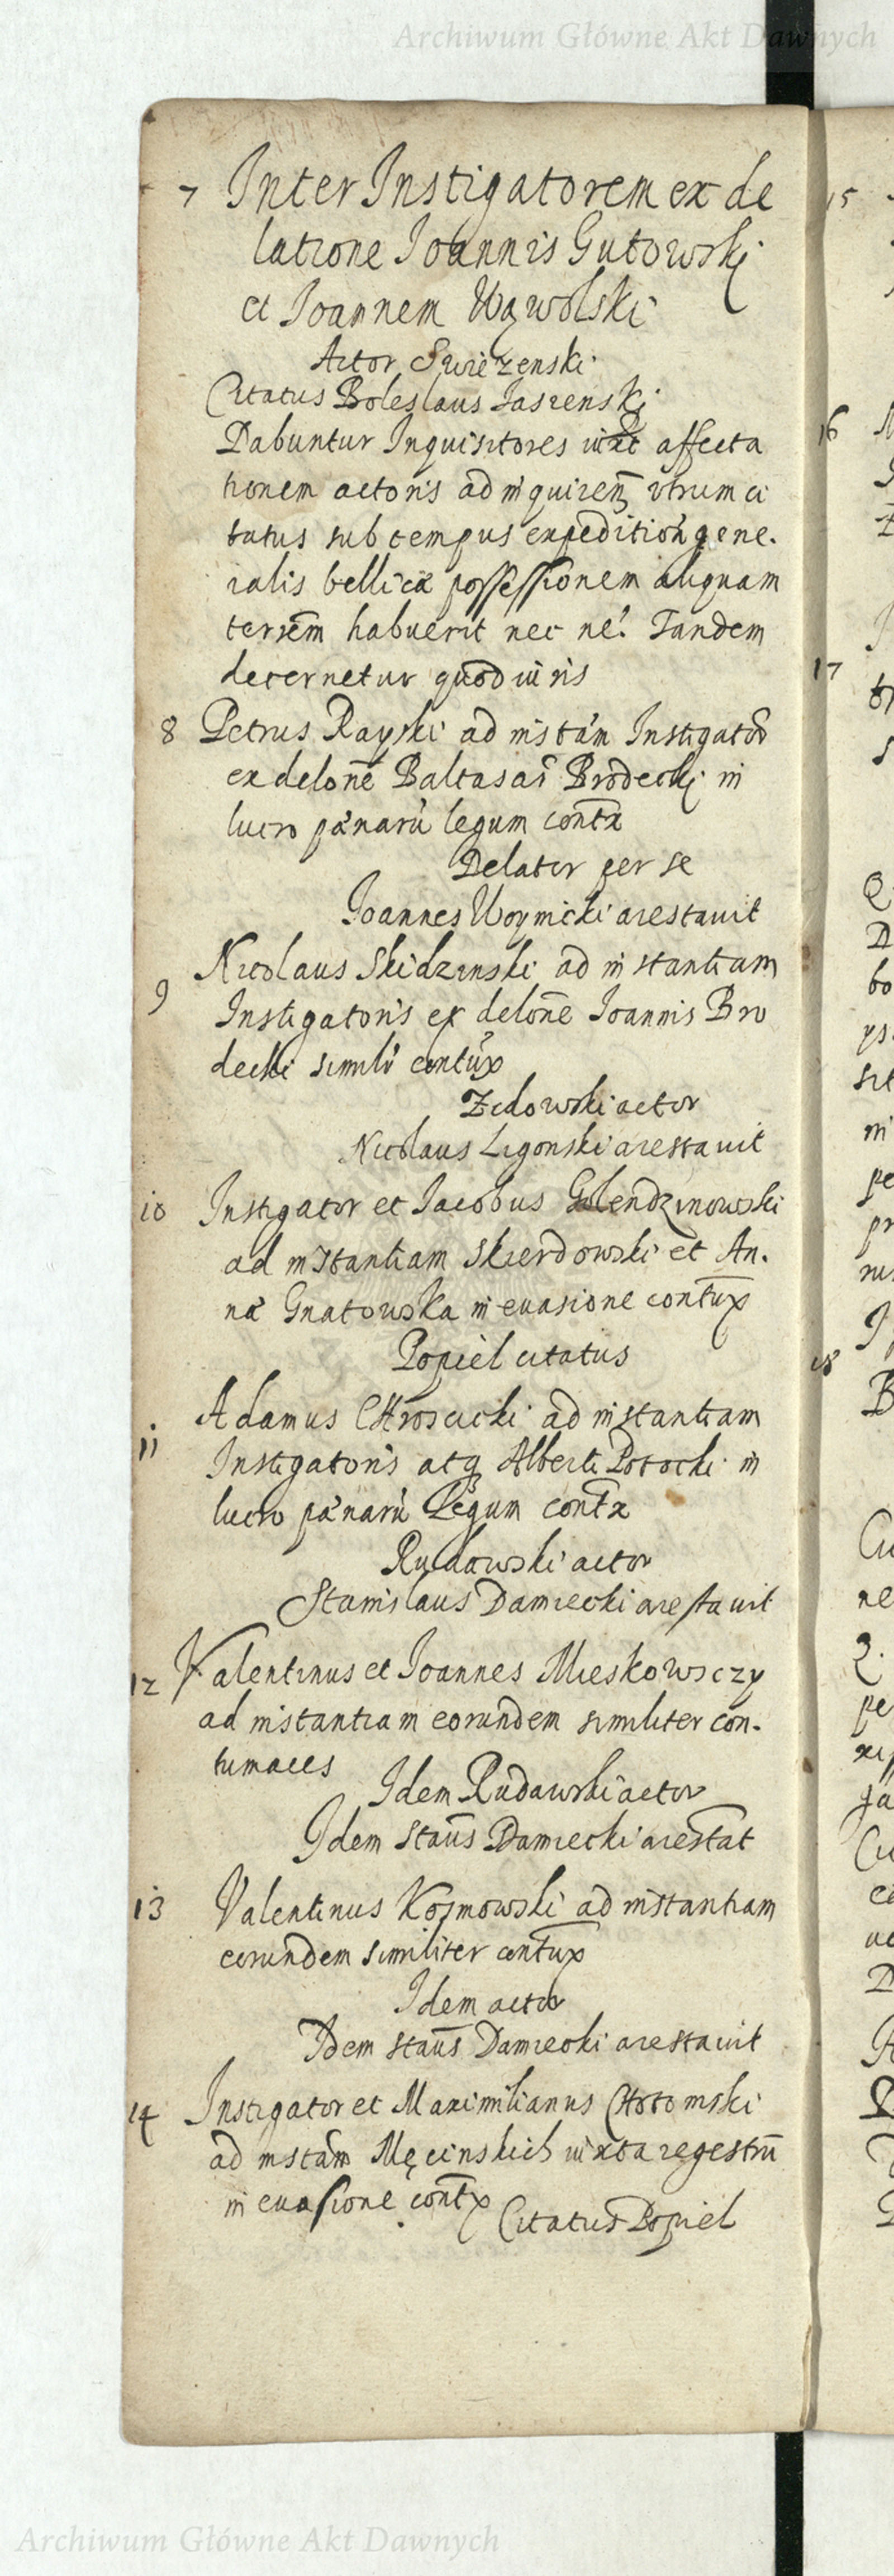 Archiwum Główne Akt Dawnych
7 Inter Instigatorem ex de
latione Joannis Gutowski
et Joannem Wąwolski
Actor Swiezenski
Citatus Boleslaus Jasienski
Dabuntur Inquisitores iuxt affecta
tionem actoris ad inquirem̄ vtrum ci
tatus sub tempus expedition gene.
ralis bellicæ possessionem aliquam
terrēm habuerit nec ne. Tandem
decernetur quod iuris
8 Petrus Rayski ad instām Instigator
ex delonē Baltasar Brodecki in
lucro pænarū legum contx
Delator per se
Joannes Woynicki arestauit
9 Nicolaus Skidzinski ad instantiam
Instigatoris ex delonē Joannis Bro
decki simili contūx
Zidowski actor
Nicolaus Ligonski arestauit
10 Instigator et Jacobus Golendzinowski
ad instantiam Skierdowski et An.
næ Gnatowska in euasione contūx
Popiel citatus
11 Adamus Chroscicki ad instantiam
Instigatoris atq Alberti Potocki in
lucro pænarū Legum contx
Rudawski actor
Stanislaus Damiecki arestauit
12 Valentinus et Joannes Mieskowsczy
ad instantiam eorundem similiter con.
tumaces
Idem Rudawski actor
Idem Staūs Damiecki arestat
13 Valentinus Kosmowski ad instantiam
eorundem similiter contūx
Idem actor
Idem Staūs Damiecki arestauit
14 Instigator et Maximilianus Chotomski
ad instām Męcinskich iuxta regestrū
in euasione contx
Citatus Popiel
15
16
17
18
Archiwum Główne Akt Dawnych